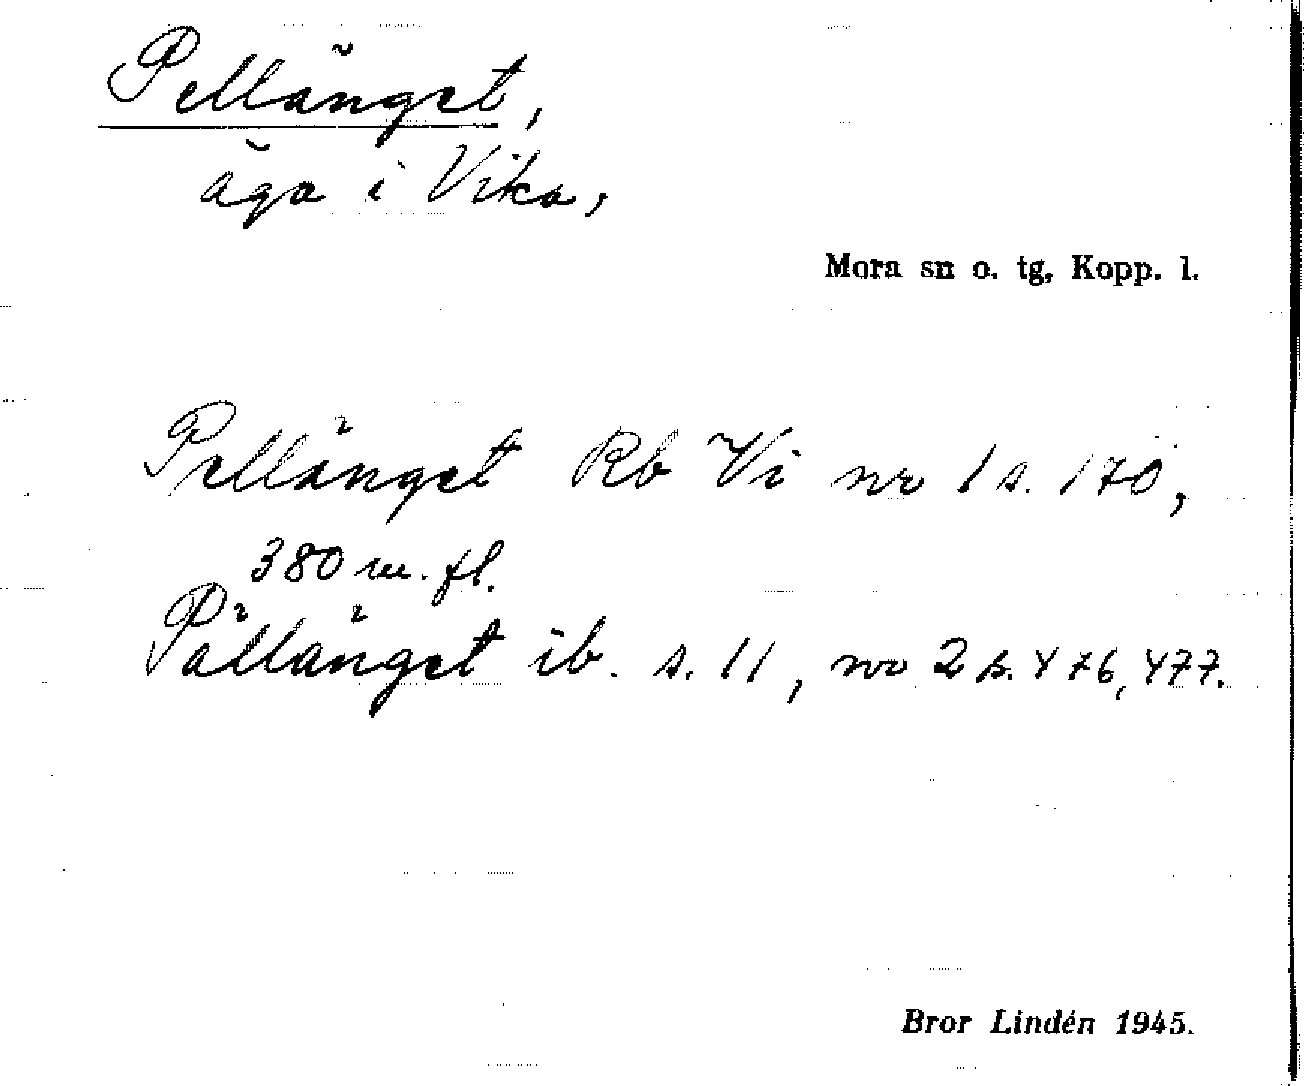 Pellänget,
äga i Vika,
Mora sn o. tg, Kopp. l.
Pellänget Rb Vi nr 1 s. 170,
380 m. fl.
Pällänget ib. s. 11, nr 2 s. 476, 477.
Bror Lindén 1945.